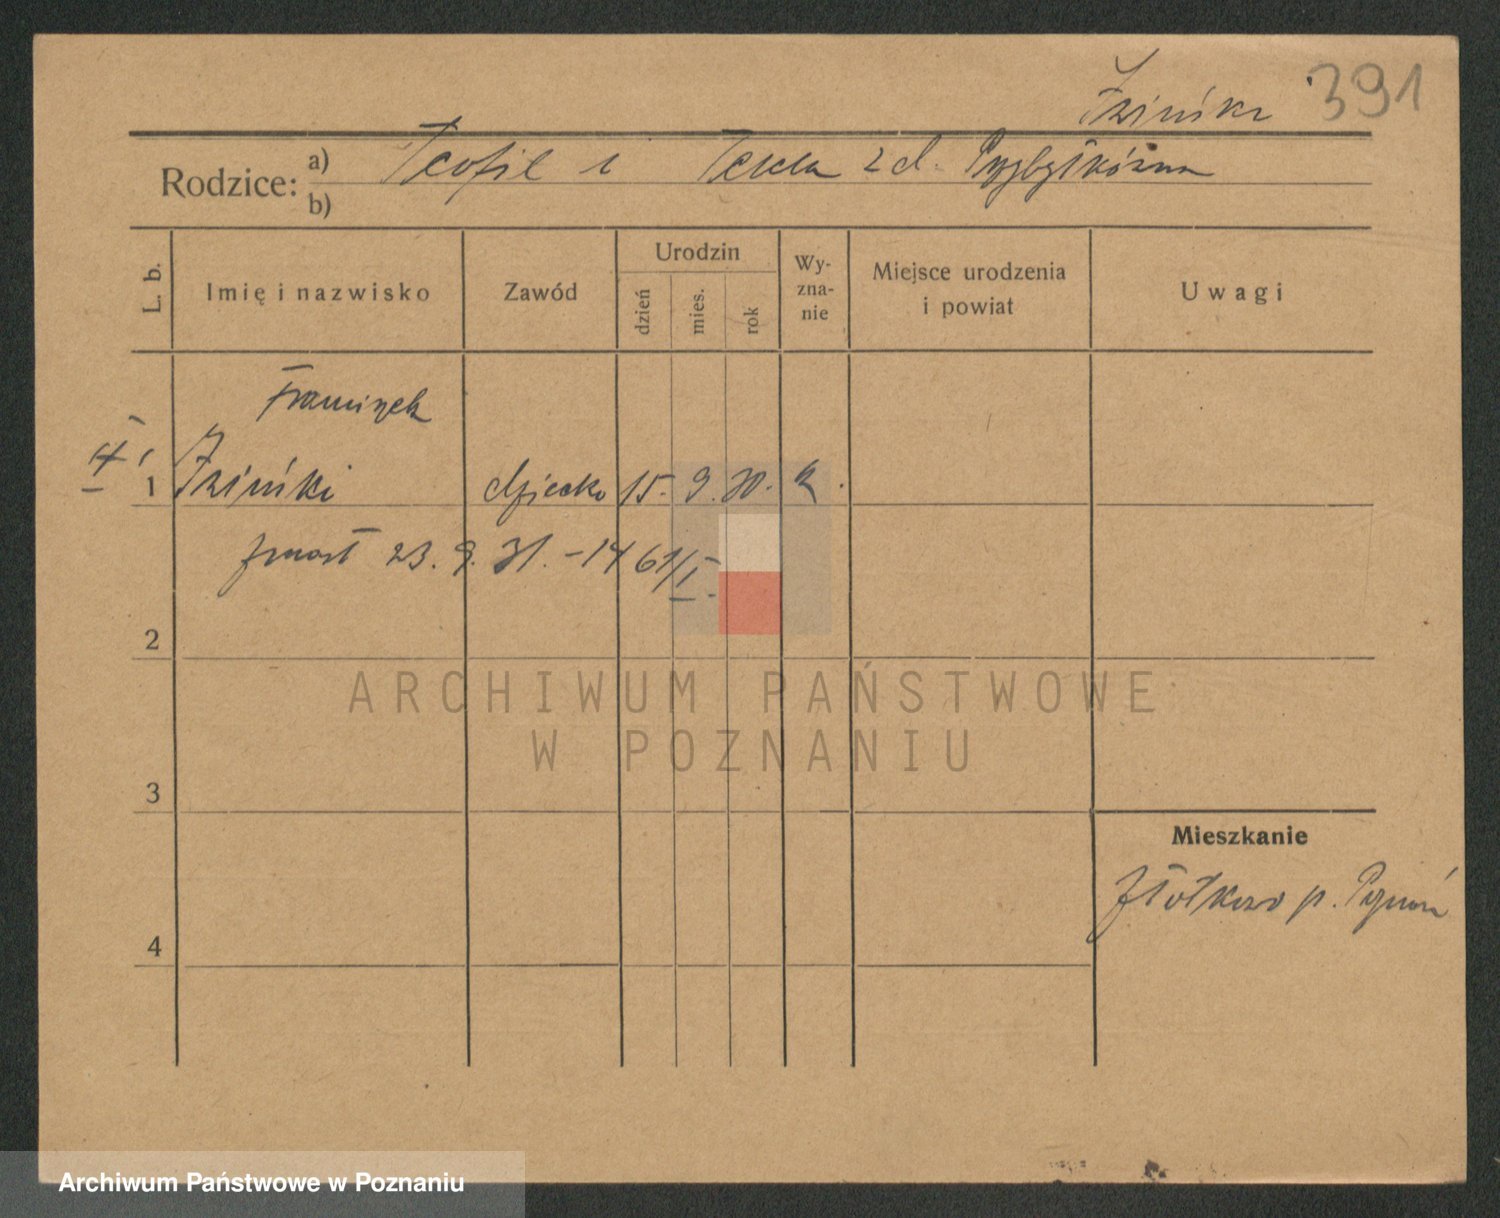 391
Rodzice: a) Teofil i Tekla z d.
b)
L. b. Imię i nazwisko Zawód Urodzin dzień mies. rok Wy-zna-nie Miejsce urodzenia i powiat Uwagi
Franciszek
1 dziecko 15. 9. 30. k.
zmarł 23. 9. 31. – 1461/I.
2
3
4
Mieszkanie
Złotkowo p. Poznań
ARCHIWUM PAŃSTWOWE
W POZNANIU
Archiwum Państwowe w Poznaniu